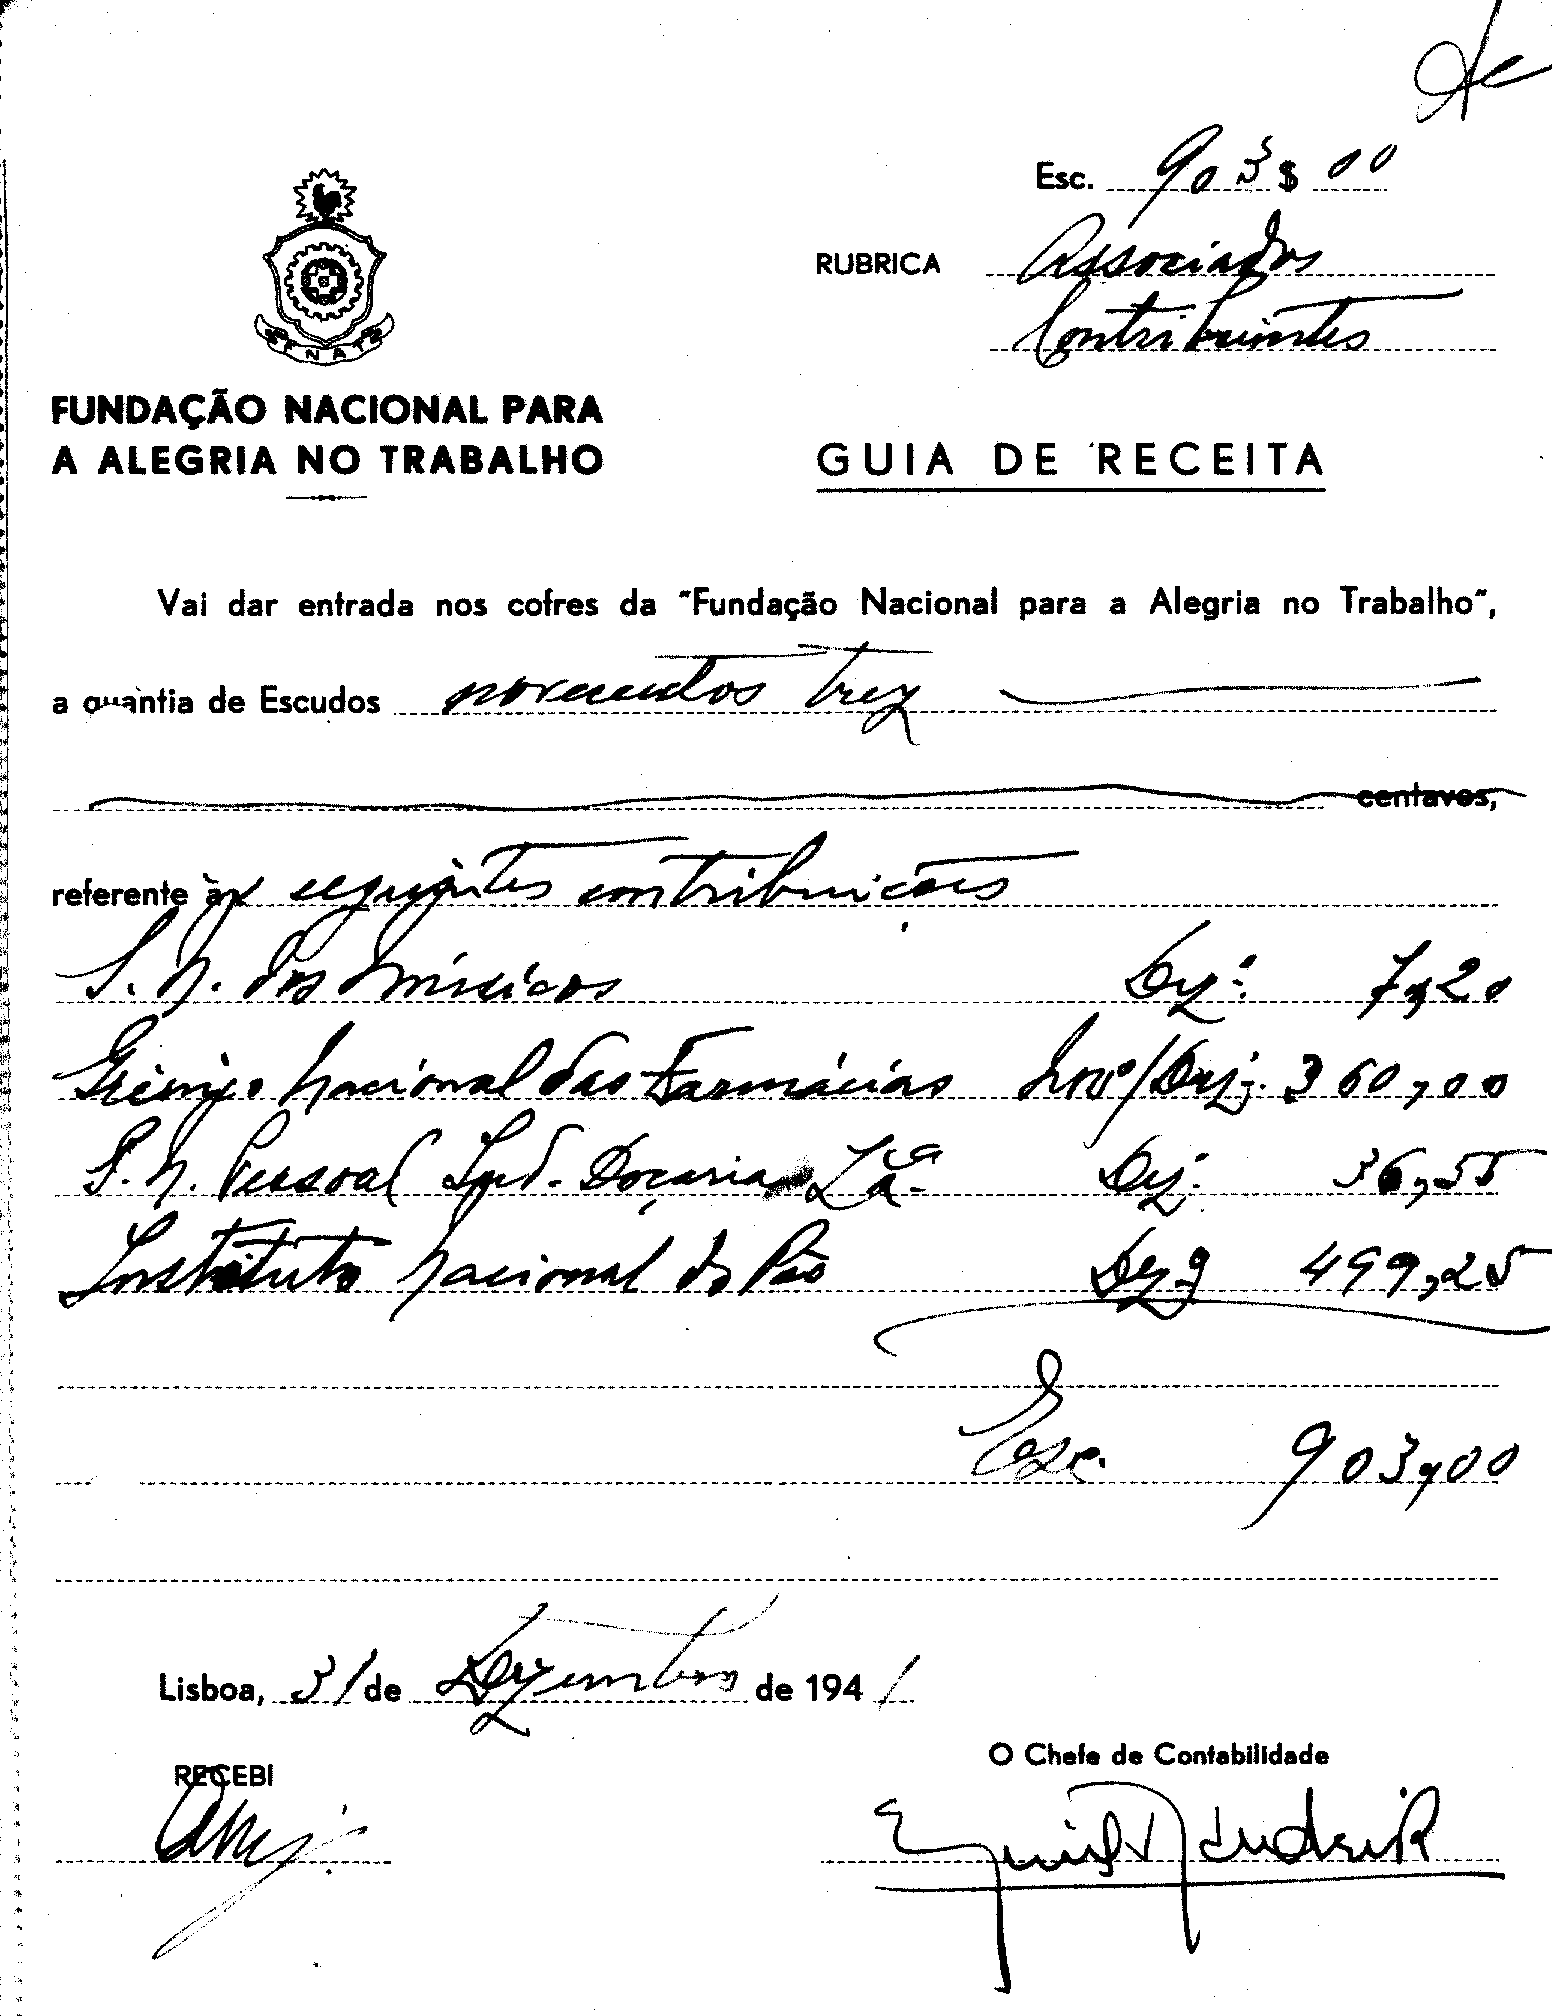 Esc. 903$00
RUBRICA Associados
Contribuintes
FENAT
FUNDAÇÃO NACIONAL PARA
A ALEGRIA NO TRABALHO
GUIA DE RECEITA
Vai dar entrada nos cofres da "Fundação Nacional para a Alegria no Trabalho",
a quantia de Escudos novecentos trez
centavos,
referente às seguintes contribuições
S. N. dos Músicos Dezº. 7,20
Grémio Nacional das Farmácias Novº/Dez. 360,00
S. N. Pessoal Ind. Doçaria Lxª. Dez. 36,55
Instituto Nacional do Pão Dezº 499,25
Esc. 903,00
Lisboa, 31 de Dezembro de 1941
RECEBI
O Chefe de Contabilidade